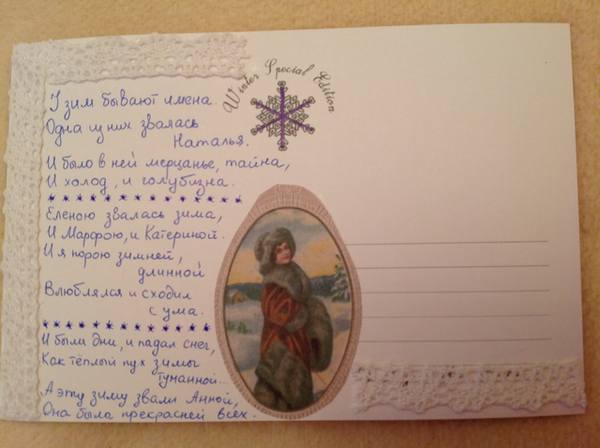 Winter Special Edition
У зим бывают имена.
Одна из них звалась
Наталья.
И было в ней мерцанье, тайна,
И холод, и голубизна.
Еленою звалась зима,
И Марфою, и Катериной.
И я порою зимней,
длинной
Влюблялся и сходил
с ума.
И были дни, и падал снег,
Как тёплый пух зимы
туманной...
А эту зиму звали Анной,
Она была прекрасней всех.